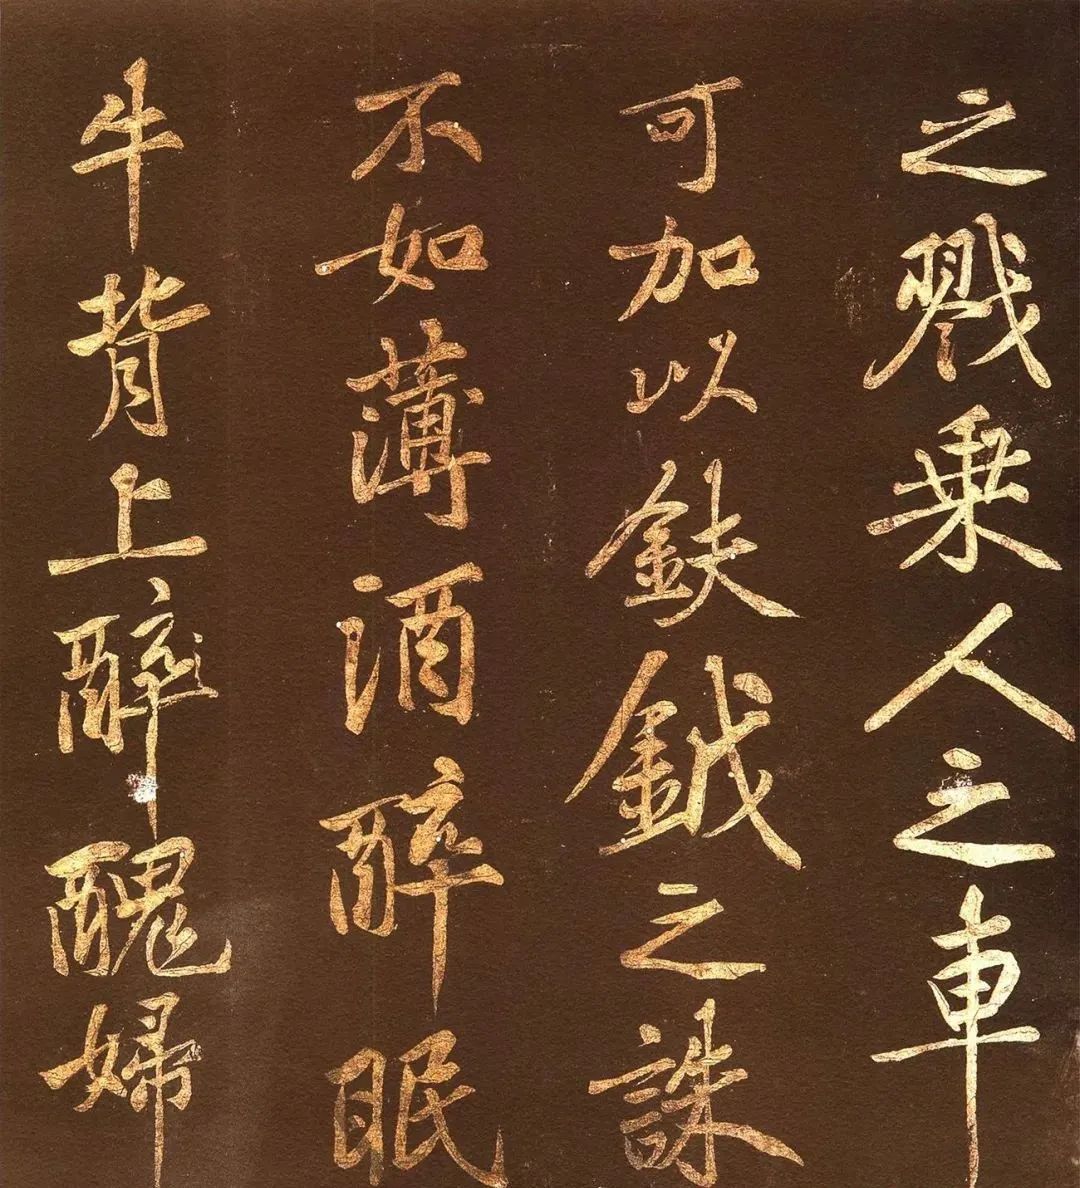 之戮乗人之車
可加以鈇鉞之誅
不如薄酒醉眠
牛背上醉醜婦